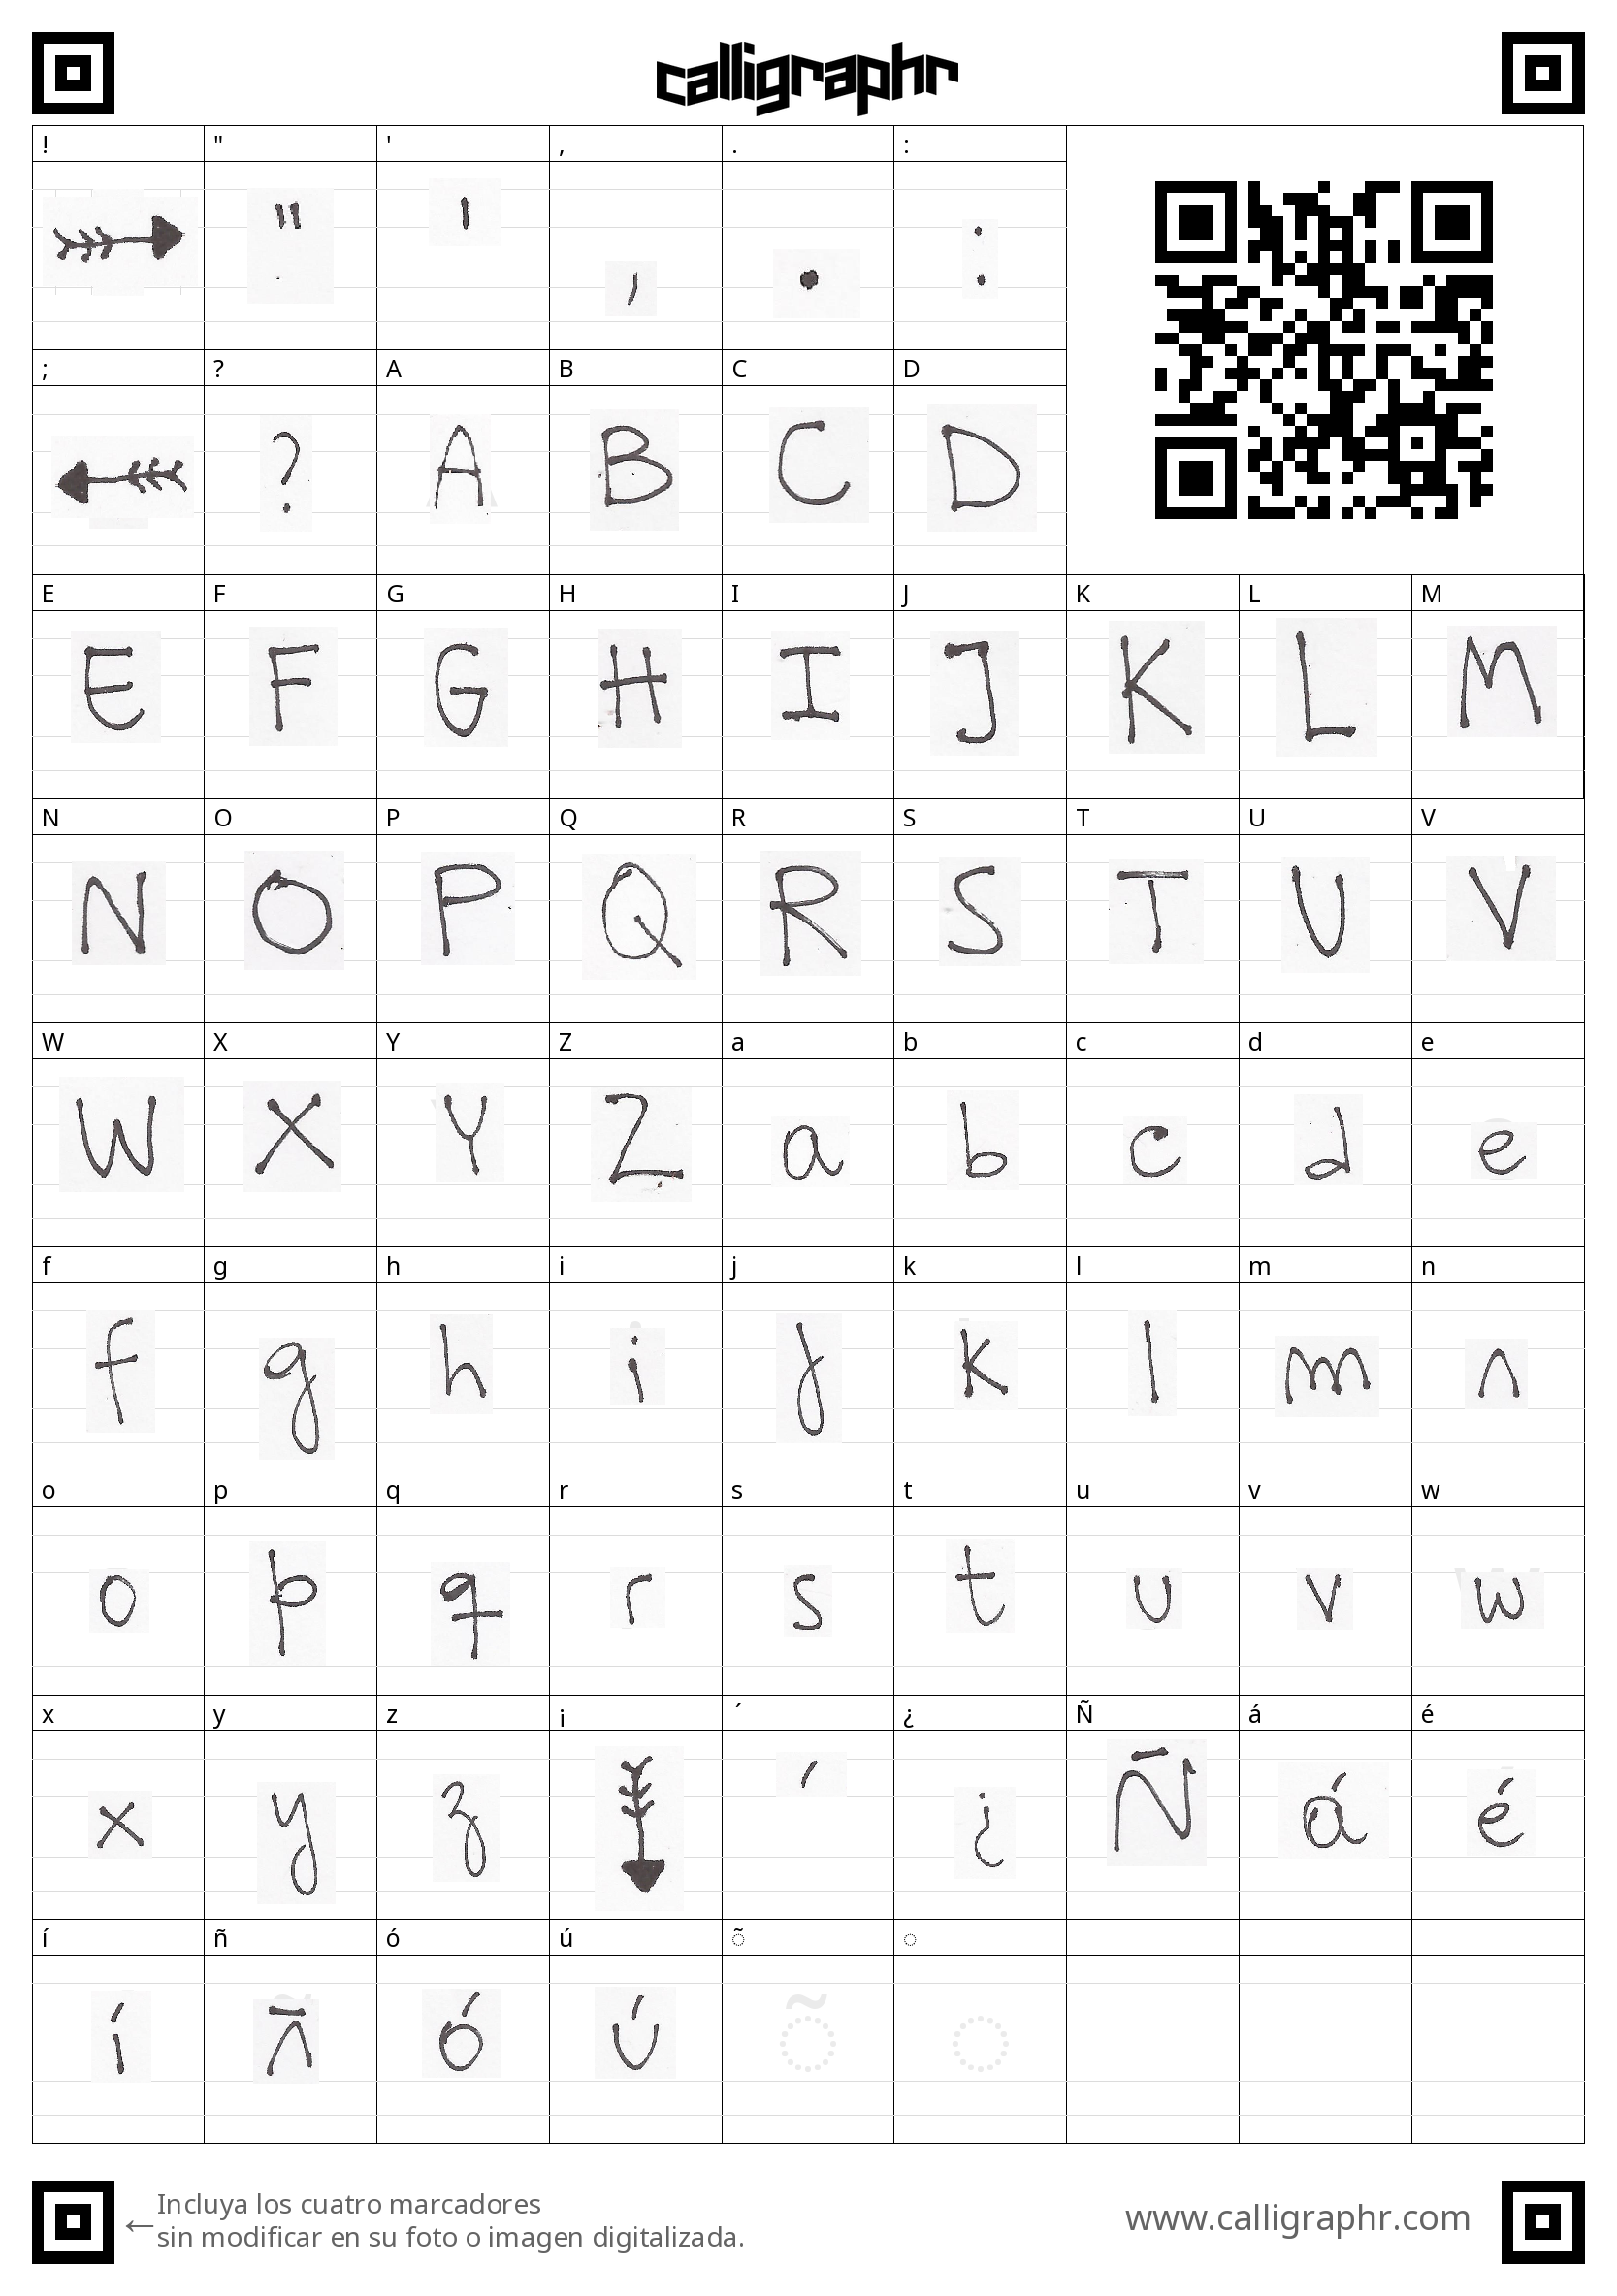 calligraphr
! " ' , . :
" ' , . :
; ? A B C D
? A B C D
E F G H I J K L M
E F G H I J K L M
N O P Q R S T U V
N O P Q R S T U V
W X Y Z a b c d e
W X Y Z a b c d e
f g h i j k l m n
f g h i j k l m n
o p q r s t u v w
o p q r s t u v w
x y z ¡ ´ ¿ Ñ á é
x y z ´ ¿ Ñ á é
í ñ ó ú õ ◌
í ñ ó ú
←Incluya los cuatro marcadores
sin modificar en su foto o imagen digitalizada.
www.calligraphr.com